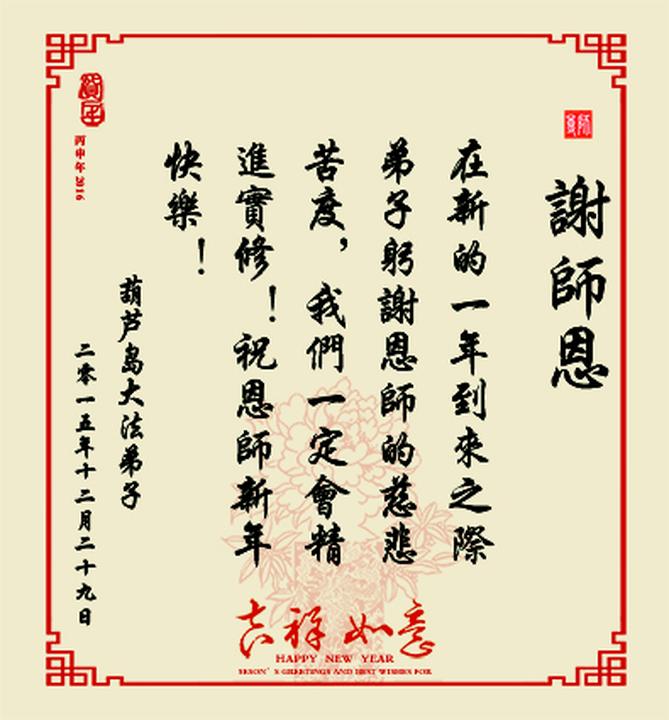 謝師恩
在新的一年到來之際
弟子躬謝恩師的慈悲
苦度，我們一定會精
進實修！祝恩師新年
快樂！
葫芦岛大法弟子
二零一五年十二月二十九日
賀年
丙申年 2016
吉祥如意
HAPPY NEW YEAR
SESON'S GREETINGS AND BEST WISHES FOR